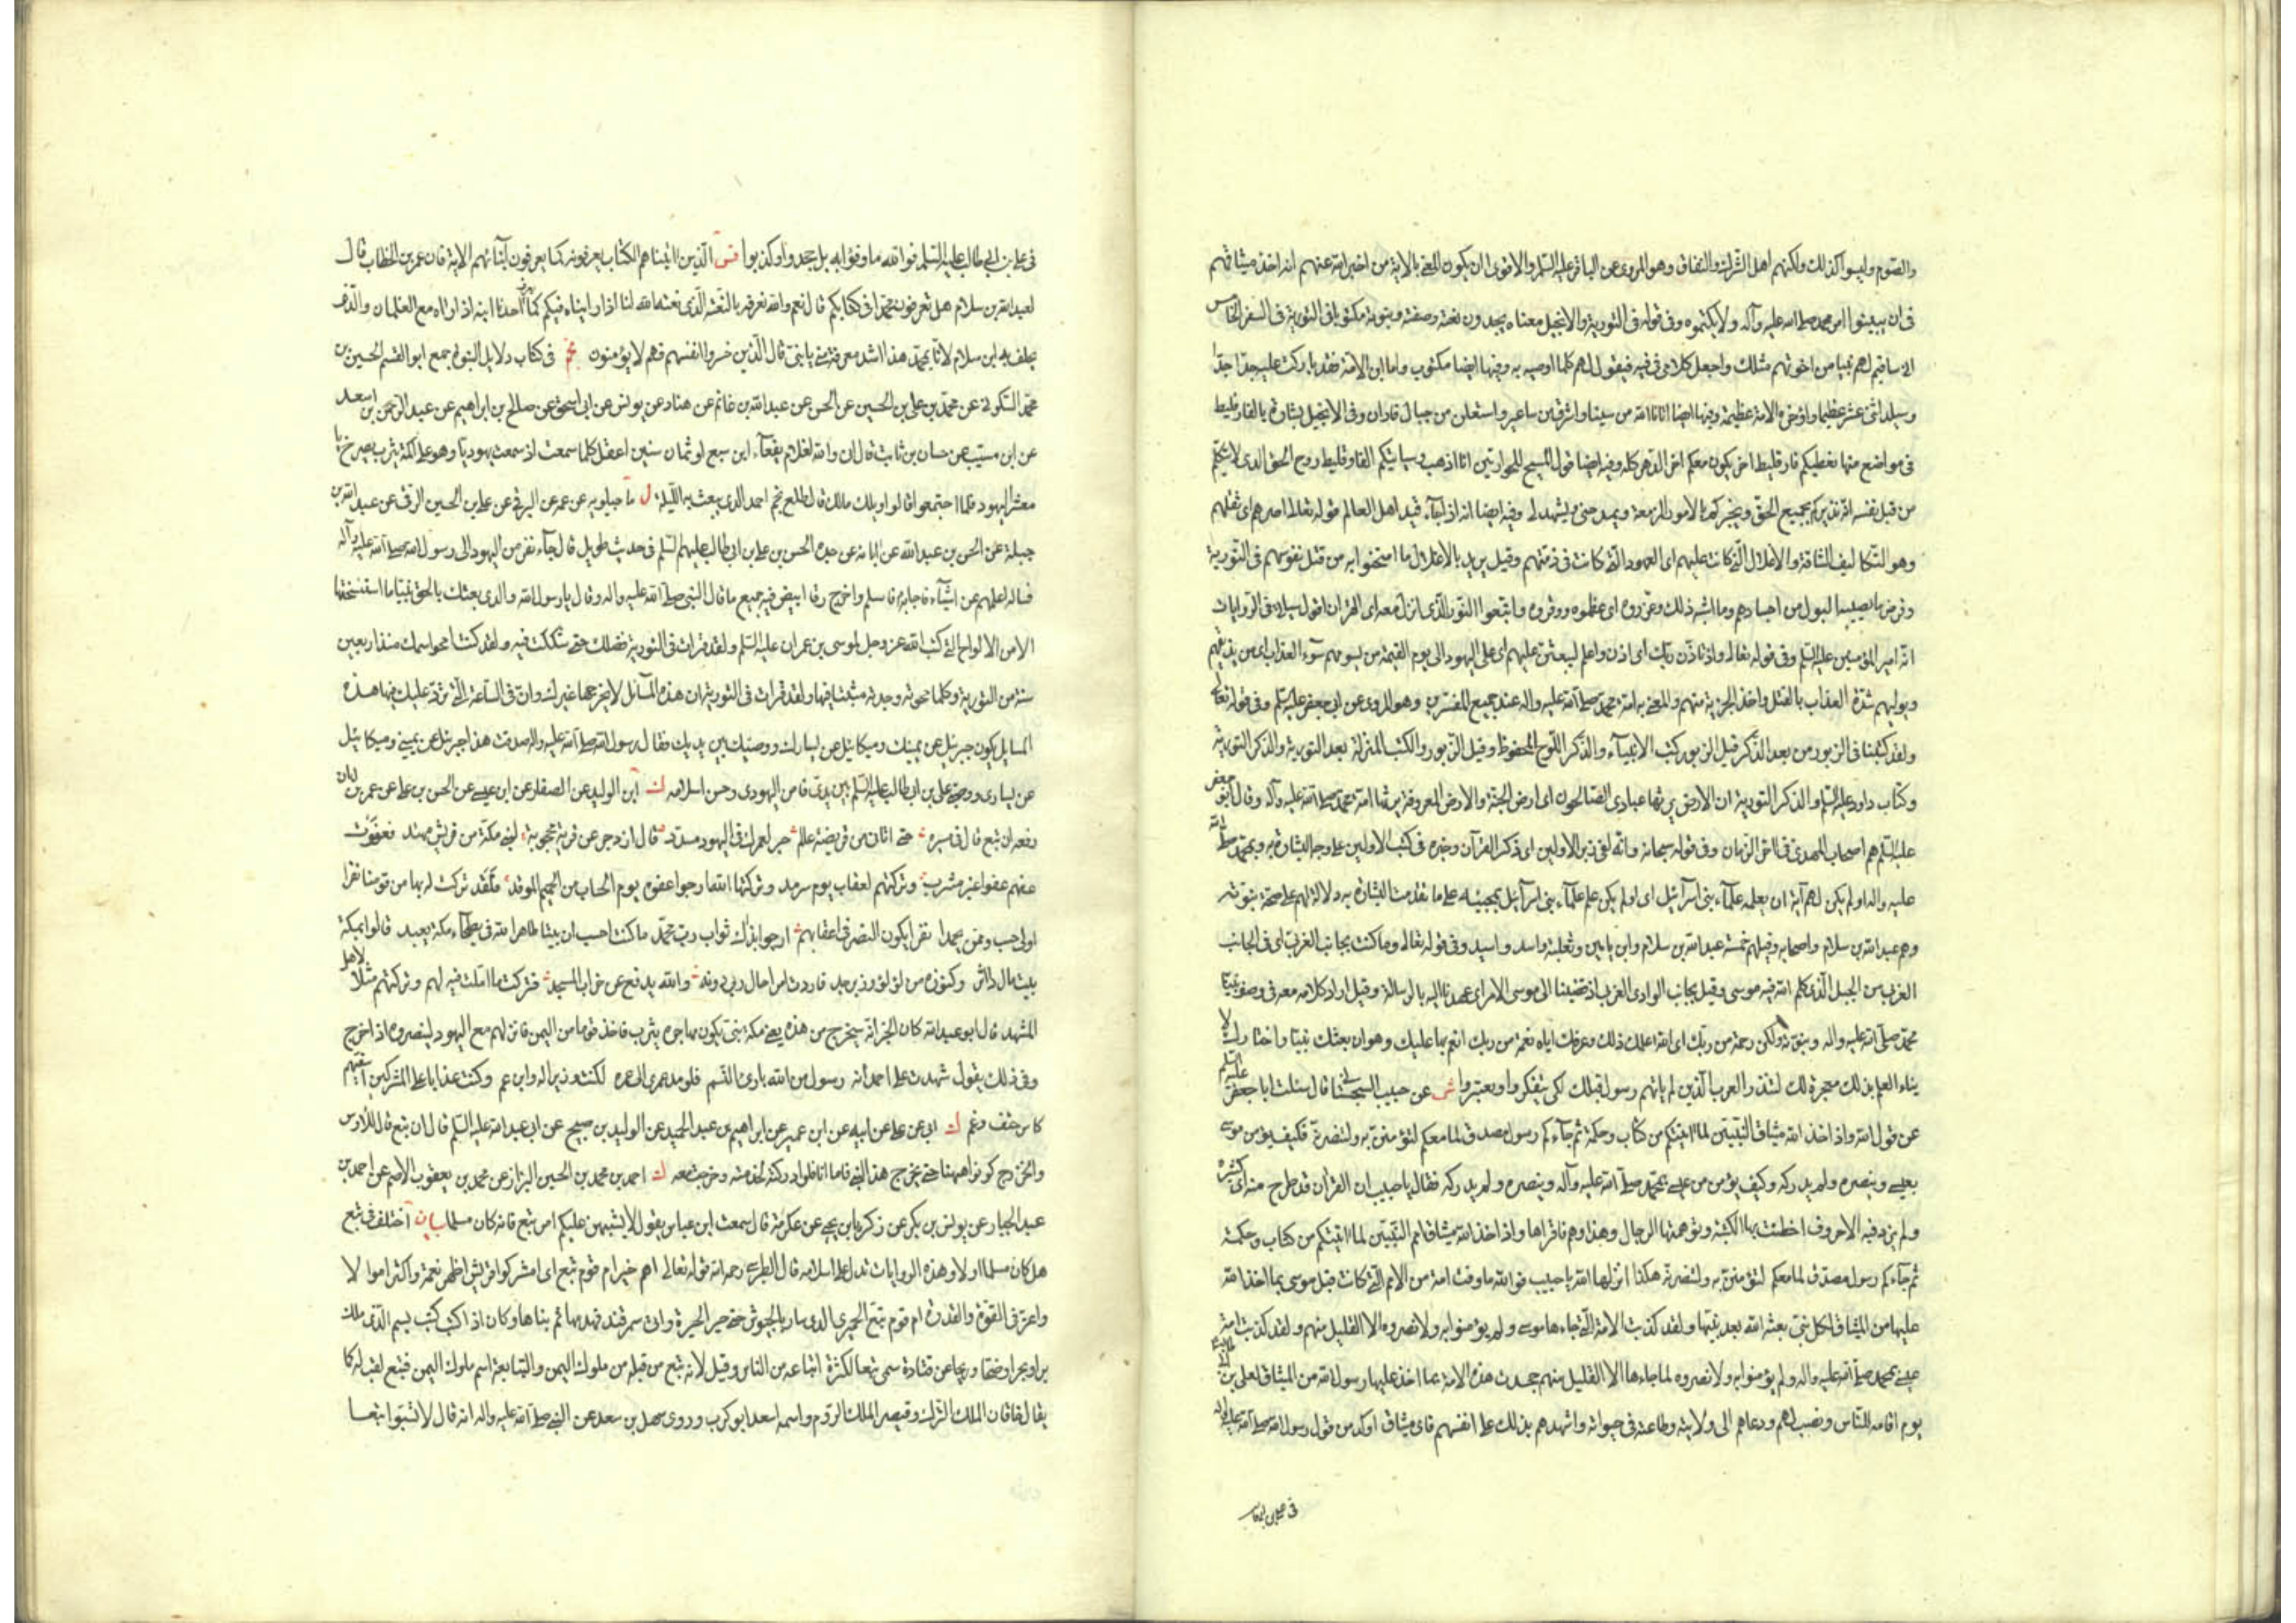 والصوم وليسوا كذلك ولكنهم اهل الشرك والنفاق وهو المروى عن الباقر عليه السلم والاقوى ان يكون المعنى بالاية من اخبر الله عنهم انه اخذ ميثاقهم
فى ان يبينوا امر محمد صلى الله عليه وآله ولا يكتموه وفى قوله فى التورية والانجيل معناه يجدون نعته وصفته ونبوته مكتوبا فى التورية فى السفر الخامس
انى ساقيم لهم نبيا من اخوتهم مثلك واجعل كلامى فى فيه فيقول لهم كلما اوصيه به وفيها ايضا مكتوب واما ابن الامة فقد باركت عليه جدا جدا
وسيلد اثنى عشر عظيما واؤخره لامة عظيمة وفيها ايضا اتانا الله من سينا واشرق من ساعير واستعلن من جبال فاران وفى الانجيل بشارة بالفارقليط
فى مواضع منها نعطيكم فارقليط اخر يكون معكم اخر الدهر كله وفيه ايضا قول المسيح للحواريين انا اذهب وسياتيكم الفارقليط روح الحق الذى لا يتكلم
من قبل نفسه انه نذيركم بجميع الحق ويخبركم بالامور المزمعة ويمدحنى ويشهد لى وفيه ايضا انه اذا جاء قيد اهل العالم قوله تعالى اصرهم اى ثقلهم
وهو التكاليف الشاقة والاغلال التى كانت عليهم اى العهود التى كانت فى ذمتهم وقيل يريد بالاغلال ما امتحنوا به من قتل نفوسهم فى التورية
وقرض ما يصيبه البول من اجسادهم وما اشبه ذلك وعزروه اى عظموه ووقروه واتبعوا النور الذى انزل معه اى القران اقول سياتى فى الروايات
انه امير المؤمنين عليه السلم وفى قوله تعالى واذ تاذن ربك اى اذن واعلم ليبعثن عليهم اى على اليهود الى يوم القيمة من يسومهم سوء العذاب اى من يذيقهم
ويوليهم شدة العذاب بالقتل واخذ الجزية منهم والمعنى به امة محمد صلى الله عليه واله عند جميع المفسرين وهو المروى عن ابى جعفر عليه السلم وفى قوله تعالى
ولقد كتبنا فى الزبور من بعد الذكر قيل الزبور كتب الانبياء والذكر اللوح المحفوظ وقيل الزبور الكتب المنزلة بعد التورية والذكر التورية
وكتاب داود عليه السلم والذكر التورية ان الارض يرثها عبادى الصالحون اى ارض الجنة والارض المعروفة يرثها امة محمد صلى الله عليه وآله وقال ابو جعفر
عليه السلم هم اصحاب المهدى فى اخر الزمان وفى قوله سبحانه وانه لفى زبر الاولين اى ذكر القرآن وخبره فى كتب الاولين على وجه البشارة به وبمحمد صلى الله
عليه واله او لم يكن لهم آية ان يعلمه علماء بنى اسرائيل اى او لم يكن علم علماء بنى اسرائيل بمجيئه على ما تقدمت البشارة به دلالة لهم على صحة نبوته
وهم عبد الله بن سلام واصحابه وقيل هم خمسة عبد الله بن سلام وابن يامين وثعلبة واسد واسيد وفى قوله تعالى وما كنت بجانب الغربى اى فى الجانب
الغربى من الجبل الذى كلم الله فيه موسى وقيل بجانب الوادى الغربى اذ قضينا الى موسى الامر اى عهدنا اليه بالرسالة وقيل اراد كلامه معه فى وصف نبينا
محمد صلى الله عليه واله ونبوته ولكن رحمة من ربك اى الله اعلمك ذلك وعرفك اياه نعمة من ربك انعم بها عليك وهو ان بعثك نبيا واختارك لا
يتاء العلم بذلك معجزة لك لتنذر العرب الذين لم ياتهم رسول قبلك لكى يتفكروا ويعتبروا شى عن حبيب السجستانى قال سئلت ابا جعفر عليه السلم
عن قول الله واذ اخذ الله ميثاق النبيين لما اتيتكم من كتاب وحكمة ثم جاءكم رسول مصدق لما معكم لتؤمنن به ولتنصرنه فكيف يؤمن موسى
بعيسى وينصره ولم يدركه وكيف يؤمن من عيسى بمحمد صلى الله عليه وآله وينصره ولم يدركه فقال يا حبيب ان القرآن قد طرح منه آى كثيرة
ولم يزد فيه الا حروف اخطئت بها الكتبة وتوهمتها الرجال وهذا وهم فاقراها واذ اخذ الله ميثاق امم النبيين لما اتيتكم من كتاب وحكمة
ثم جاءكم رسول مصدق لما معكم لتؤمنن به ولتنصرنه هكذا انزلها الله يا حبيب فوالله ما وفت امة من الامم التى كانت قبل موسى بما اخذ الله
عليها من الميثاق لكل نبى بعثه الله بعد نبيها ولقد كذبت الامة التى جاءها موسى ولم يؤمنوا به ولا نصروه الا القليل منهم ولقد كذبت امة
عيسى بمحمد صلى الله عليه واله ولم يؤمنوا به ولا نصروه لما جاءها الا القليل منهم جحدت هذه الامة بما اخذ عليها رسول الله من الميثاق لعلى بن
يوم اقامه للناس ونصبه لهم ودعاهم الى ولايته وطاعته فى حيوته واشهدهم بذلك على انفسهم فاى ميثاق اوكد من قول رسول الله صلى الله عليه واله
فى على بن ابى طالب
فى على بن ابى طالب عليه السلم فوالله ما وفوا به بل جحدوا وكذبوا فس الذين اتيناهم الكتاب يعرفونه كما يعرفون ابنائهم الاية فان عمر بن الخطاب قال
لعبد الله بن سلام هل تعرفون محمدا فى كتابكم قال نعم والله نعرفه بالنعت الذى نعته الله لنا اذا رايناه فيكم كما يعرف احدنا ابنه اذا راه مع الغلمان والذى
يحلف به ابن سلام لانا بمحمد هذا اشد معرفة منى بابنى قال الذين خسروا انفسهم فهم لا يؤمنون نجم فى كتاب دلايل النبوة جمع ابو القسم الحسين بن
محمد السكونى عن محمد بن على بن الحسين عن الحسن عن عبد الله بن غانم عن هناد عن يونس عن ابى اسحق عن صالح بن ابراهيم عن عبد الرحمن بن اسعد
عن ابن مسيب عن حسان بن ثابت قال انى والله لغلام يفعاء ابن سبع او ثمان سنين اعقل كلما سمعت اذ سمعت يهوديا وهو على اكمة يثرب يصرخ يا
معشر اليهود فلما اجتمعوا قالوا ويلك مالك قال طلع نجم احمد الذى يبعث به الليلة ل ماجيلويه عن عمه عن البرقى عن على بن الحسين الرقى عن عبد الله بن
جبلة عن الحسن بن عبد الله عن ابائه عن جده الحسن بن على بن ابى طالب عليهم السلم فى حديث طويل قال جاء نفر من اليهود الى رسول الله صلى الله عليه وآله
فساله اعلمهم عن اشياء فاجابه فاسلم واخرج رقا ابيض فيه جميع ما قال النبى صلى الله عليه واله وقال يا رسول الله والذى بعثك بالحق نبيا ما استنسختها
الا من الالواح التى كتب الله عز وجل لموسى بن عمران عليه السلم ولقد قرات فى التورية فضلك حتى شككت فيه ولقد كنت امحو اسمك منذ اربعين
سنة من التورية وكلما محوته وجدته مثبتا فيها ولقد قرات فى التورية ان هذه المسائل لا يخرجها غيرك وان فى الساعة التى ترد عليك فيها هذه
المسايل يكون جبرئيل عن يمينك وميكائيل عن يسارك ووصيك بين يديك فقال رسول الله صلى الله عليه واله صدقت هذا جبرئيل عن يمينى وميكائيل
عن يسارى ووصيى على بن ابى طالب عليه السلم بين يدى فامن اليهودى وحسن اسلامه ك ابن الوليد عن الصفار عن ابن عيسى عن الحسن بن على عن عمر بن ابان
رفعه ان تبع قال فى مسيره حتى اتانى من قريضة عالم حبر لعمرك فى اليهود مسدد قال ازدجر عن قرية محجوبة لنبى مكة من قريش مهتد فعفوت
عنهم عفوا غير مثرب وتركتهم لعقاب يوم سرمد وتركتها لله ارجو عفوه يوم الحساب من الجحيم الموقد فلقد تركت له بها من قومنا نفرا
اولى حسب وممن يحمد نفرا يكون النصر فى اعقابهم ارجو بذاك ثواب رب محمد ما كنت احسب ان بيتا ظاهرا لله فى بطحاء مكة يعبد قالوا بمكة
بيت مال داثر وكنوزه من لؤلؤ وزبرجد فاردت امرا حال ربى دونه والله يدفع عن خراب المسجد فتركت ما املت فيه لهم وتركتهم مثلا لاهل
المشهد قال ابو عبد الله كان الخبر انه سيخرج من هذه يعنى مكة نبى يكون مهاجره يثرب فاخذ قوما من اليمن فانزلهم مع اليهود لينصروه اذا خرج
وفى ذلك يقول شهدت على احمد انه رسول من الله بارئ النسم فلو مد عمرى الى عمره لكنت وزيرا له وابن عم وكنت عذابا على المشركين اسقيهم
كاس حتف وغم ك ابى عن على عن ابيه عن ابن عمير عن ابراهيم بن عبد الحميد عن الوليد بن صبيح عن ابى عبد الله عليه السلم قال ان تبع قال للاوس
والخزرج كونوا ههنا حتى يخرج هذا النبى فاما انا فلو ادركته لخدمته وخرجت معه ك احمد بن محمد بن الحسين البزاز عن محمد بن يعقوب الاصم عن احمد بن
عبد الجبار عن يونس بن بكير عن زكريا بن يحيى عن عكرمة قال سمعت ابن عباس يقول لا يشتبهن عليكم امر تبع فانه كان مسلما بيان اختلف فى تبع
هل كان مسلما او لا وهذه الروايات تدل على اسلامه قال الطبرسى رحمه الله قوله تعالى اهم خير ام قوم تبع اى امشركوا قريش اظهر نعمة واكثر اموالا
واعز فى القوة والقدرة ام قوم تبع الحميرى الذى سار بالجيوش حتى حير الحيرة واتى سمرقند فهدمها ثم بناها وكان اذا كتب كتب بسم الذى ملك
برا وبحرا وضحا وريحا عن قتادة سمى تبعا لكثرة اتباعه من الناس وقيل لانه تبع من قبله من ملوك اليمن والتبابعة اسم ملوك اليمن فتبع لقب له كما
يقال خاقان الملك الترك وقيصر الملك الروم واسمه اسعد ابو كرب وروى سهل بن سعد عن النبى صلى الله عليه واله انه قال لا تسبوا تبعا